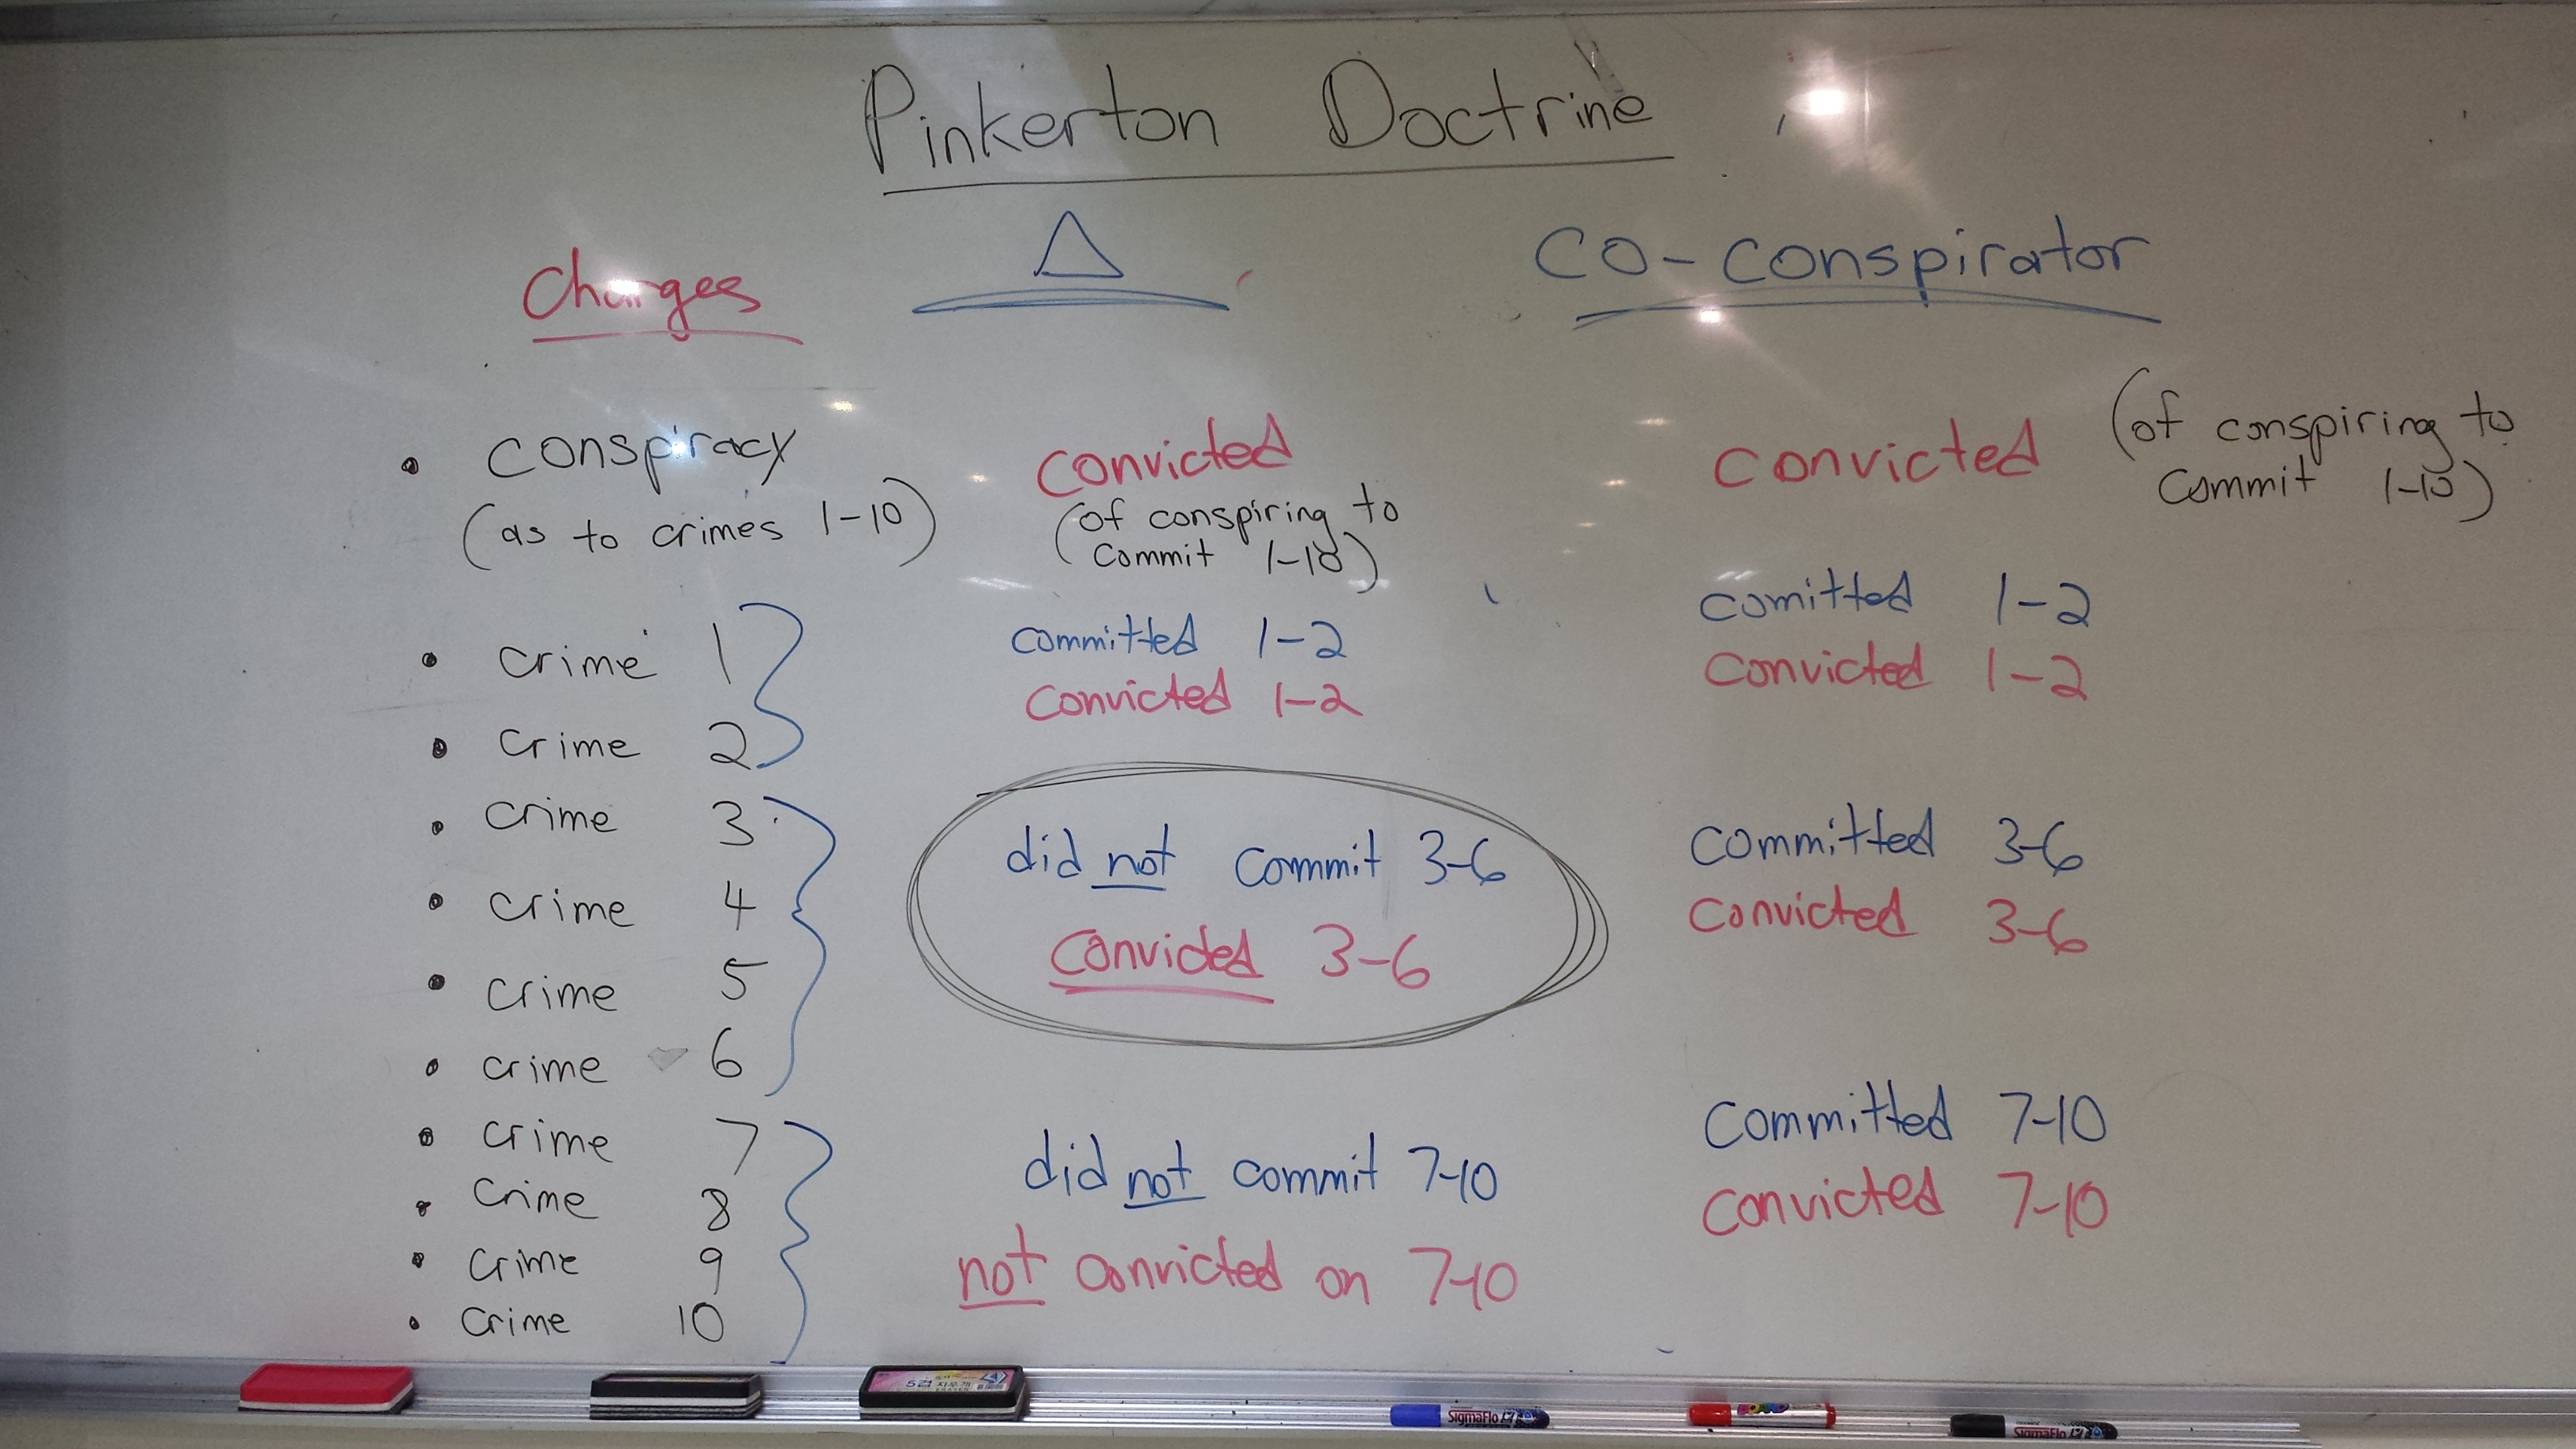 Pinkerton Doctrine
Charges
Δ
CO-Conspirator
• Conspiracy
(as to crimes 1-10)
Convicted
(of conspiring to
Commit 1-10)
Convicted (of conspiring to
Commit 1-10)
• Crime 1
• Crime 2
committed 1-2
Convicted 1-2
comitted 1-2
Convicted 1-2
• Crime 3
• Crime 4
• Crime 5
• Crime 6
did not commit 3-6
Convicted 3-6
Committed 3-6
Convicted 3-6
• Crime 7
• Crime 8
• Crime 9
• Crime 10
did not commit 7-10
not convicted on 7-10
Committed 7-10
Convicted 7-10
5겹 지우개
ERASER
SigmaFlo
BOARD
SigmaFlo